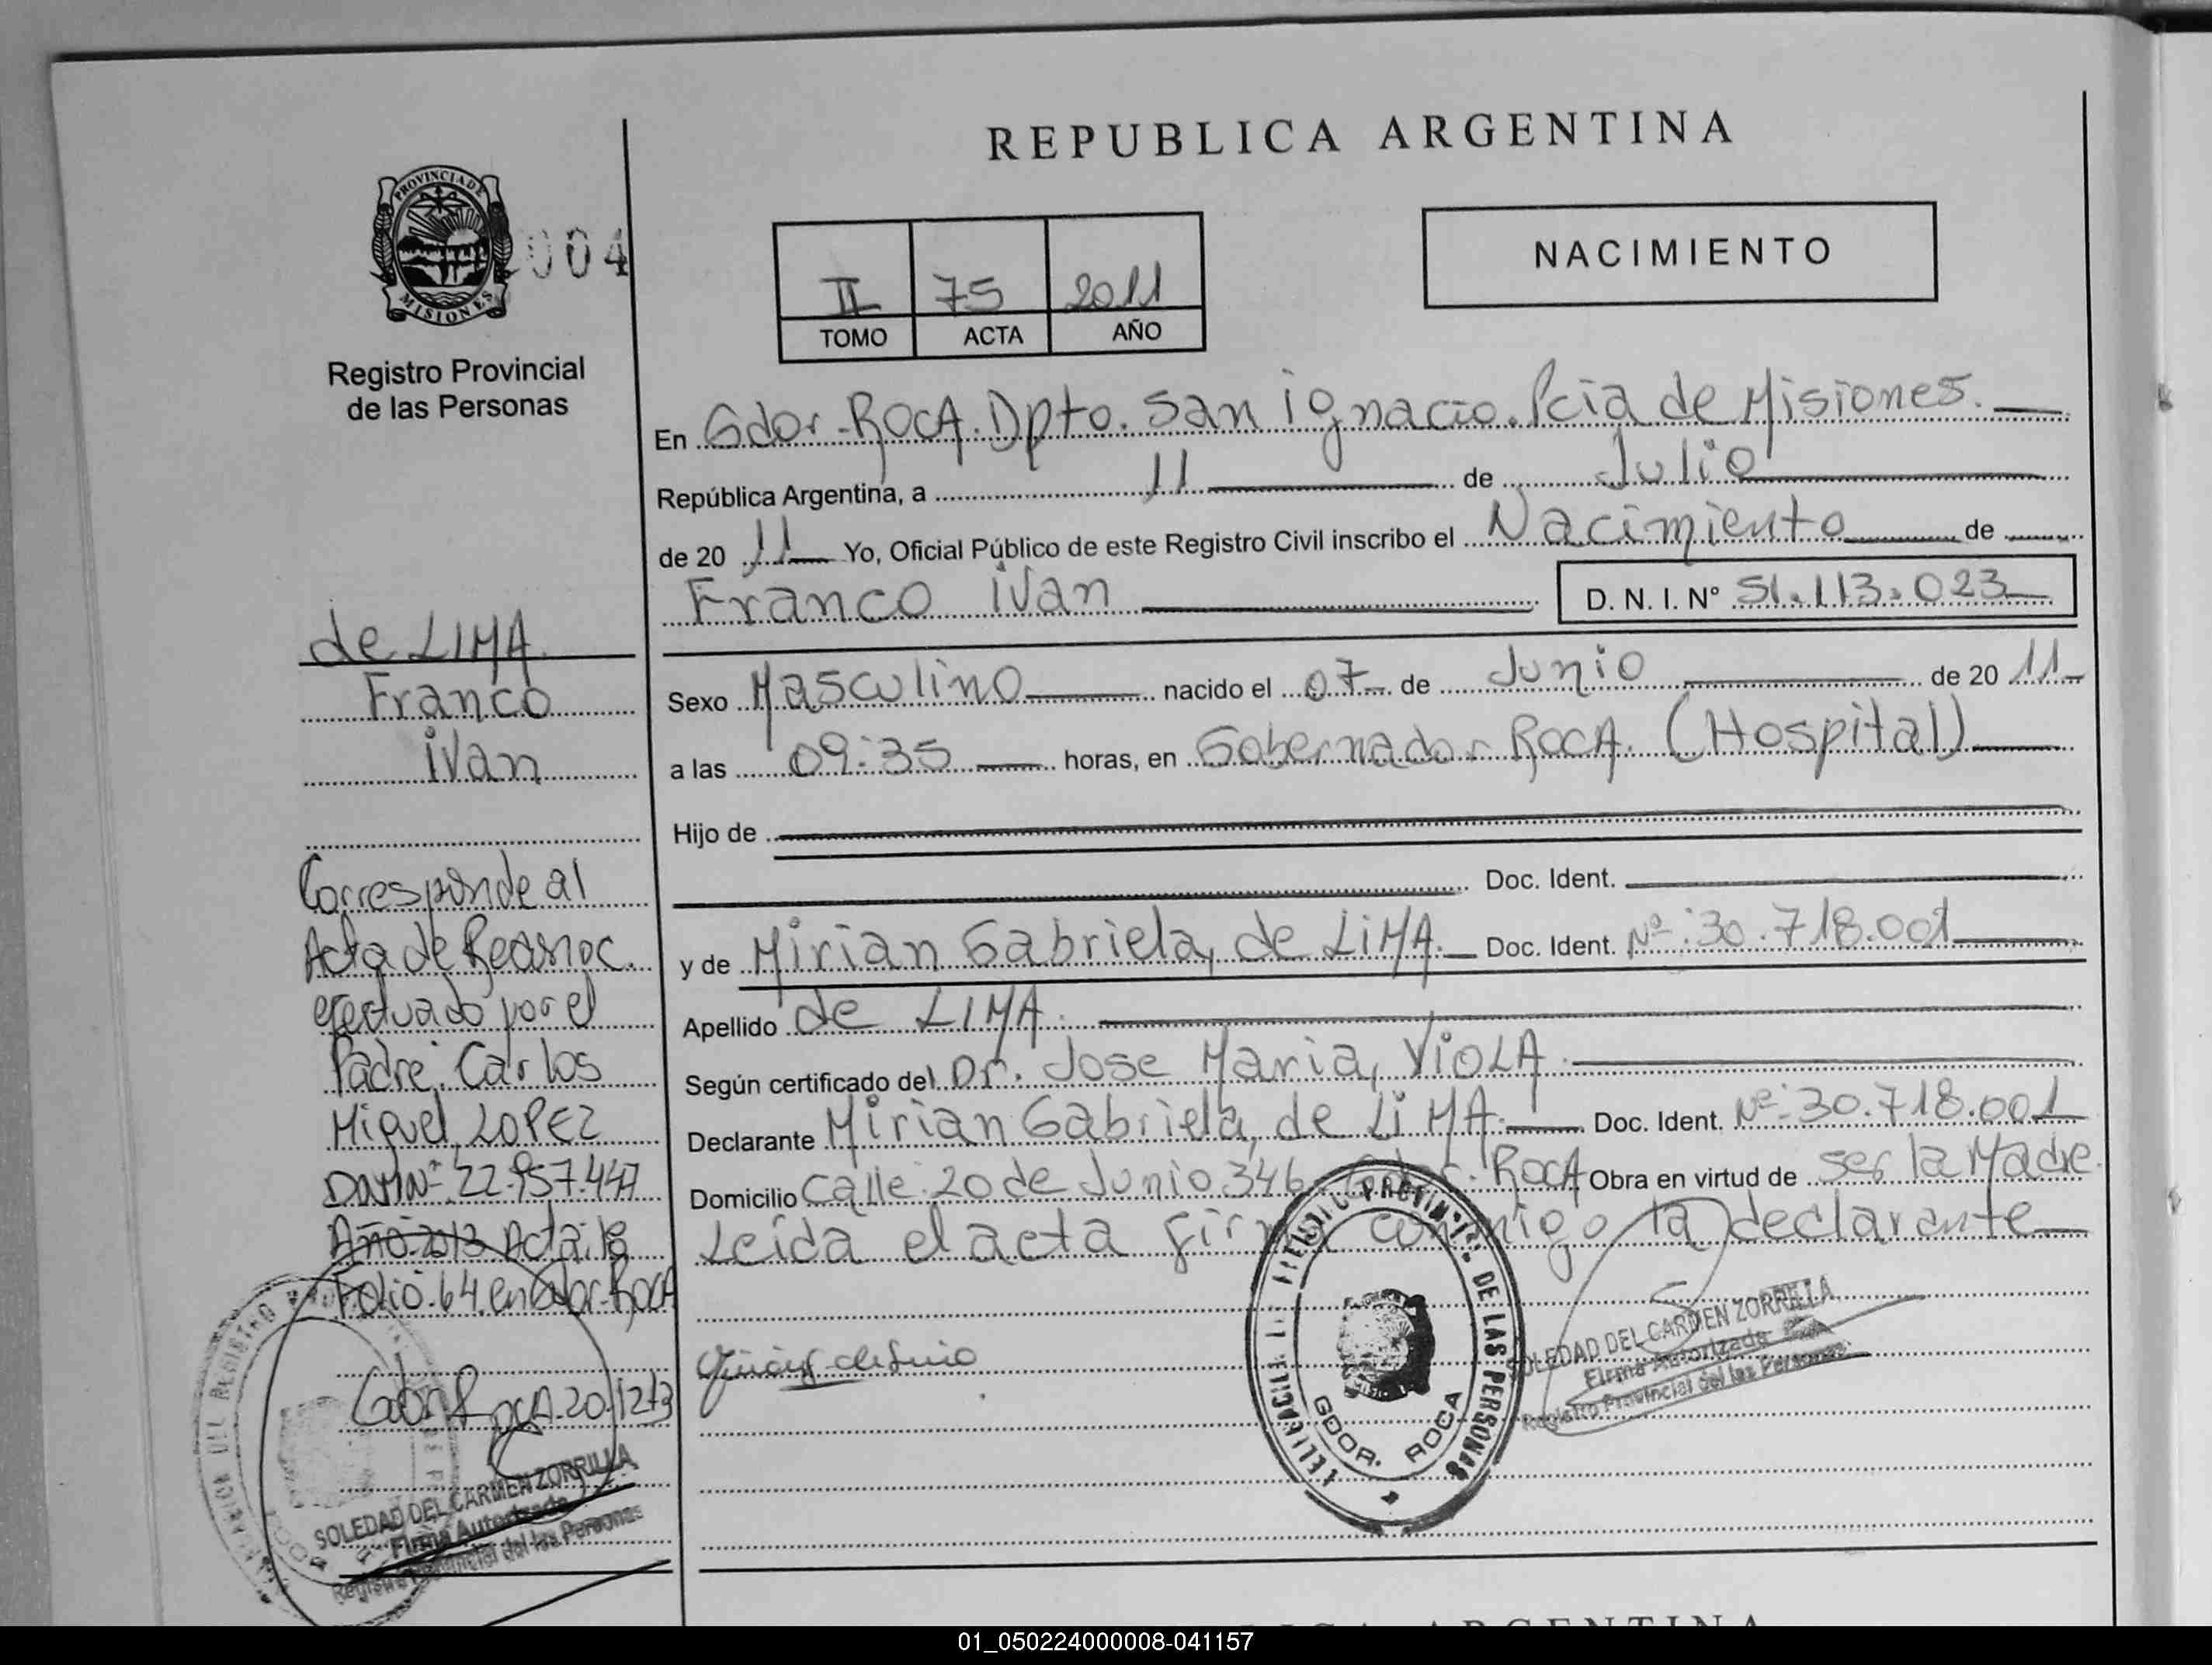 REPUBLICA ARGENTINA
PROVINCIA DE
MISIONES
004
Registro Provincial
de las Personas
NACIMIENTO
II 75 2011
TOMO ACTA AÑO
En Gdor. ROCA. Dpto. San ignacio. Pcia de Misiones.
República Argentina, a 11 de Julio
de 20 11 Yo, Oficial Público de este Registro Civil inscribo el Nacimiento de
Franco ivan D. N. I. N° 51.113.023
Sexo Masculino nacido el 07 de Junio de 20 11
a las 09:35 horas, en Gobernador ROCA. (Hospital)
Hijo de
Doc. Ident.
y de Mirian Gabriela, de LiMA. Doc. Ident. Nº:30.718.001
Apellido de LIMA.
Según certificado del Dr. Jose Maria, ViOLA.
Declarante Mirian Gabriela, de LiMA. Doc. Ident. Nº:30.718.001
Domicilio Calle: 20 de Junio 346. Gdor. ROCA Obra en virtud de ser la Madre.
Leida el acta firma conmigo la declarante
de LIMA.
Franco
ivan
Corresponde al
Acta de Reconoc.
efectuado por el
Padre. Carlos
Miguel, LOPEZ
DNI Nº 22.957.447
Año: 2013 Acta: 16
Folio. 64. en Gdor. ROCA
Gdor. ROCA. 20/12/13
SOLEDAD DEL CARMEN ZORRILLA
Firma Autorizada
Registro Provincial del las Personas
DE LAS PERSONAS
GDOR. ROCA
SOLEDAD DEL CARMEN ZORRILLA
Firma Autorizada
Registro Provincial del las Personas
01_050224000008-041157